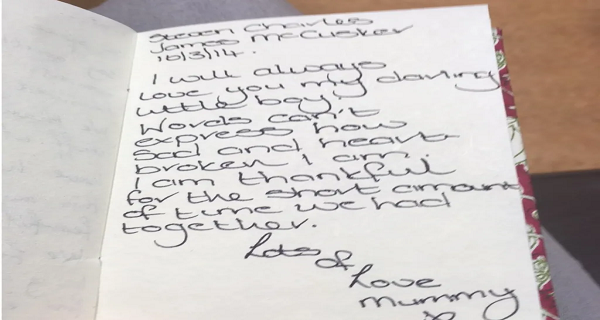 Steven Charles
James McCusker
10/3/14.
I will always
love you my darling
little boy.
Words can't
express how
sad and heart
broken I am.
I am thankful
for the short amount
of time we had
together.
Lots
of
Love
mummy
x